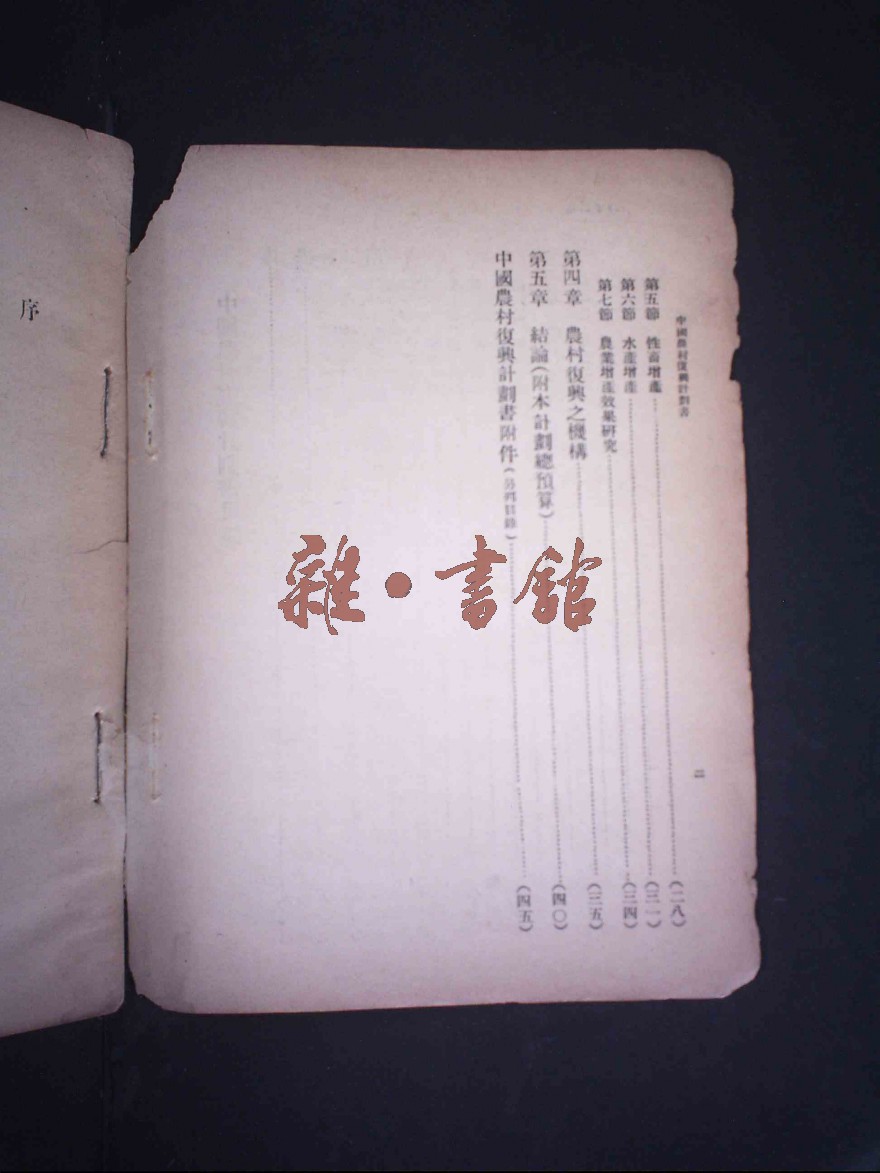 中國農村復興計劃書
二
第五節 牲畜增產……(二八)
第六節 水產增產……(三一)
第七節 農業增產效果研究……(三四)
第四章 農村復興之機構……(三五)
第五章 結論(附本計劃總預算)……(四〇)
中國農村復興計劃書附件(另列目錄)……(四五)
序
雜•書館